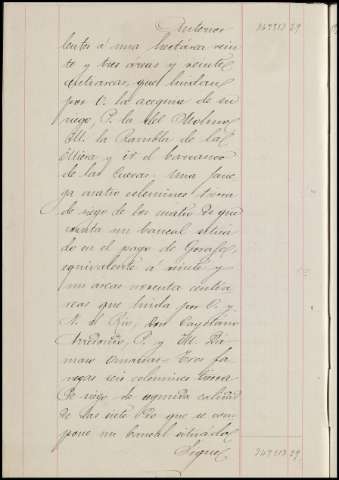 Anterior 349313 29
lentes á una hectárea vein
te y tres áreas y veinte
centiareas, que lindan
por O. la acequia de su
riego, P. la del Molino
M. la Rambla de la
Mícora y N. el barranco
de las Cuevas. Una fane
ga cuatro celemines tierra
de riego de los cuatro de que
consta un bancal situa
do en el pago de Gorafe,
equivalente á veinte y
un áreas noventa centiá
reas que linda por O. y
N. el Rio, Don Cayetano
P. y M. Dá
maso Tres fa
negas seis celemines tierra
de riego de segunda calidad
de las siete que se com
pone un bancal situado
Sigue 349313 29